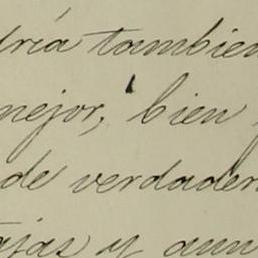 dría tambien
mejor, bien
de verdader
ajas y aun